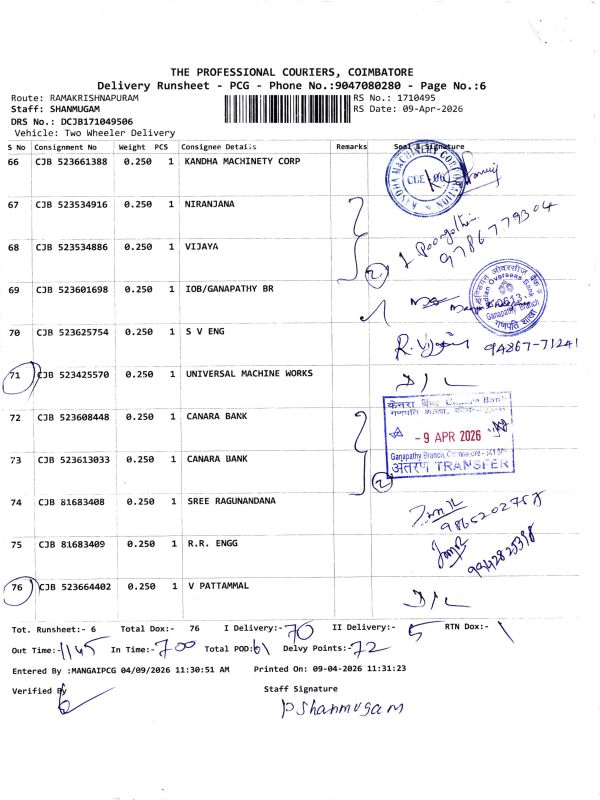 THE PROFESSIONAL COURIERS, COIMBATORE
Delivery Runsheet - PCG - Phone No.:9047080280 - Page No.:6
Route: RAMAKRISHNAPURAM RS No.: 1710495
Staff: SHANMUGAM RS Date: 09-Apr-2026
DRS No.: DCJB171049506
Vehicle: Two Wheeler Delivery
S No Consignment No Weight PCS Consignee Details Remarks Seal & Signature
66 CJB 523661388 0.250 1 KANDHA MACHINETY CORP
KANDHA MACHINERY CORPORATION
67 CJB 523534916 0.250 1 NIRANJANA
9786779304
68 CJB 523534886 0.250 1 VIJAYA
2
69 CJB 523601698 0.250 1 IOB/GANAPATHY BR
इण्डियन ओवरसीज़ बैंक
Indian Overseas Bank
Ganapathy Branch
गणपति शाखा
70 CJB 523625754 0.250 1 S V ENG
94867-71241
71 CJB 523425570 0.250 1 UNIVERSAL MACHINE WORKS D/L
72 CJB 523608448 0.250 1 CANARA BANK
केनरा बैंक Canara Bank
- 9 APR 2026
73 CJB 523613033 0.250 1 CANARA BANK
Ganapathy Branch, Coimbatore
अंतरण TRANSFER
2
74 CJB 81683408 0.250 1 SREE RAGUNANDANA
75 CJB 81683409 0.250 1 R.R. ENGG
76 CJB 523664402 0.250 1 V PATTAMMAL D/L
Tot. Runsheet:- 6 Total Dox:- 76 I Delivery:- 70 II Delivery:- 5 RTN Dox:- 1
Out Time:- 1145 In Time:- 7.00 Total POD: 61 Delvy Points:- 72
Entered By :MANGAIPCG 04/09/2026 11:30:51 AM Printed On: 09-04-2026 11:31:23
Verified By Staff Signature
P Shanmugam